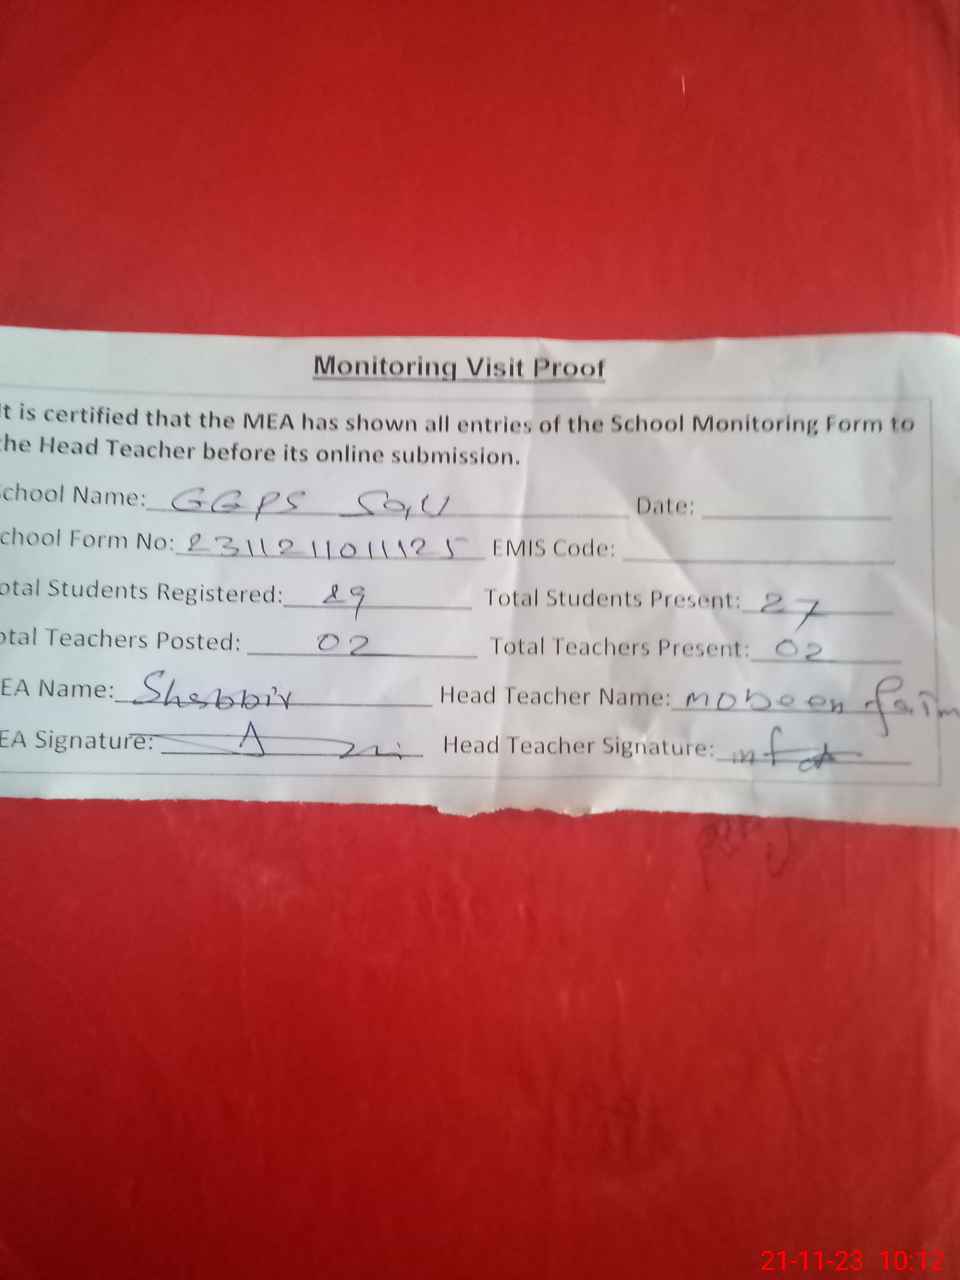 Monitoring Visit Proof
It is certified that the MEA has shown all entries of the School Monitoring Form to
the Head Teacher before its online submission.
chool Name: GGPS Date:
chool Form No: 231121101125 EMIS Code:
otal Students Registered: 29 Total Students Present: 27
otal Teachers Posted: 02 Total Teachers Present: 02
EA Name: Shabbir Head Teacher Name: mobeen
EA Signature: Head Teacher Signature:
21-11-23 10:12